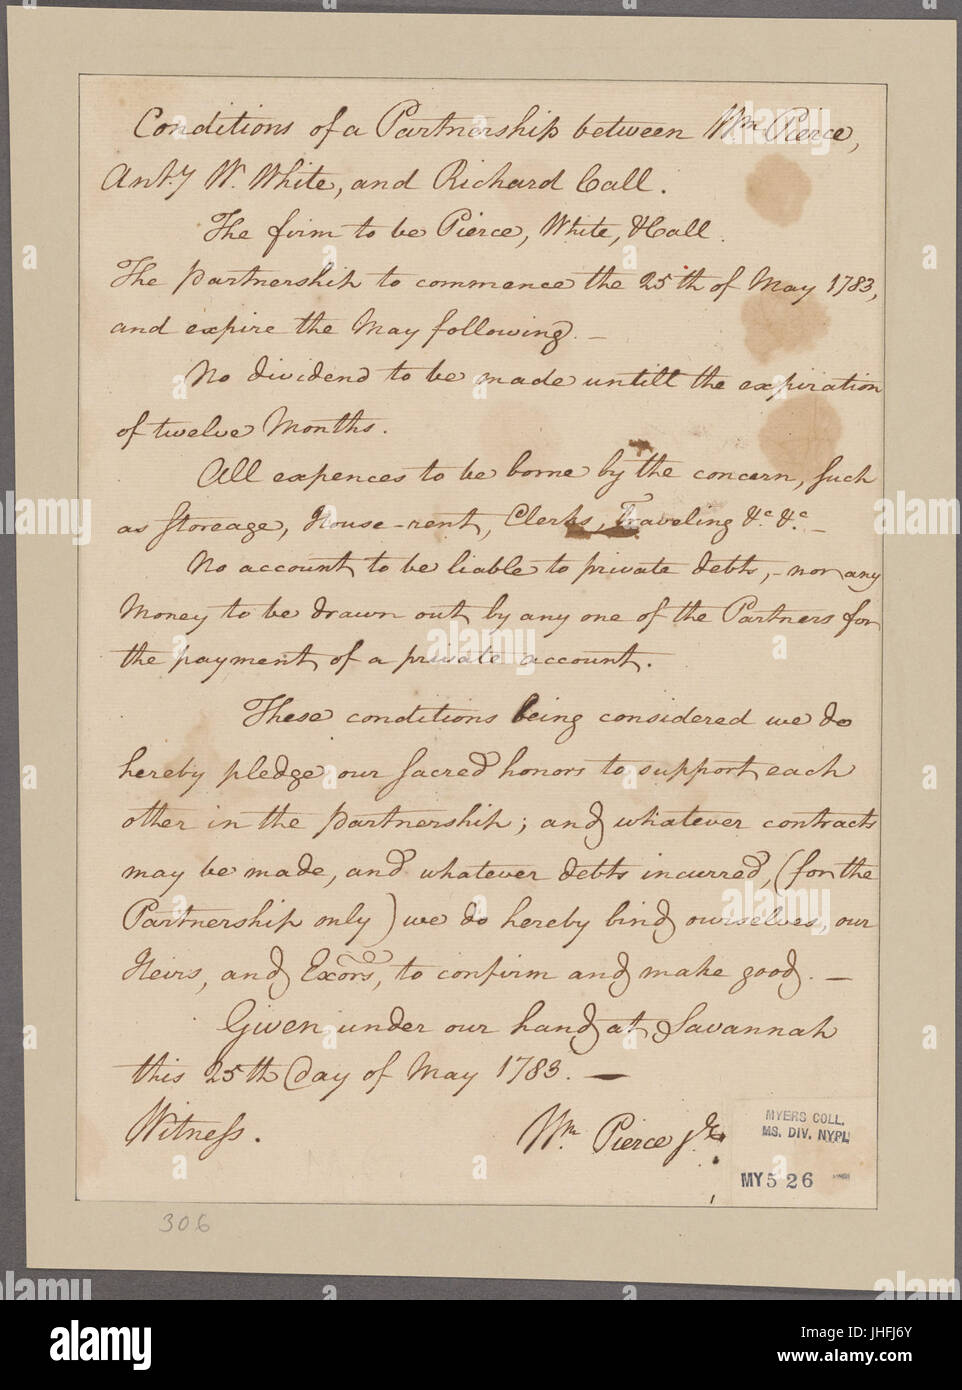 Conditions of a Partnership between Wm. Pierce,
Anty W. White, and Richard Call.
The firm to be Pierce, White, & Call.
The partnership to commence the 25th of May 1783,
and expire the May following. —
No dividend to be made untill the expiration
of twelve Months.
All expences to be borne by the concern, such
as Storeage, House-rent, Clerks, Traveling &c. &c. —
No account to be liable to private debts, - nor any
Money to be drawn out by any one of the Partners for
the payment of a private account.
These conditions being considered we do
hereby pledge our sacred honors to support each
other in the partnership; and whatever contracts
may be made, and whatever debts incurred, (for the
Partnership only) we do hereby bind ourselves, our
Heirs, and Exors, to confirm and make good. —
Given under our hand at Savannah
this 25th Day of May 1783. —
Witness.
Wm. Pierce Jr.
MYERS COLL.
MS. DIV. NYPL
MY 5 26
306
alamy
Image ID: JHFJ6Y
www.alamy.com